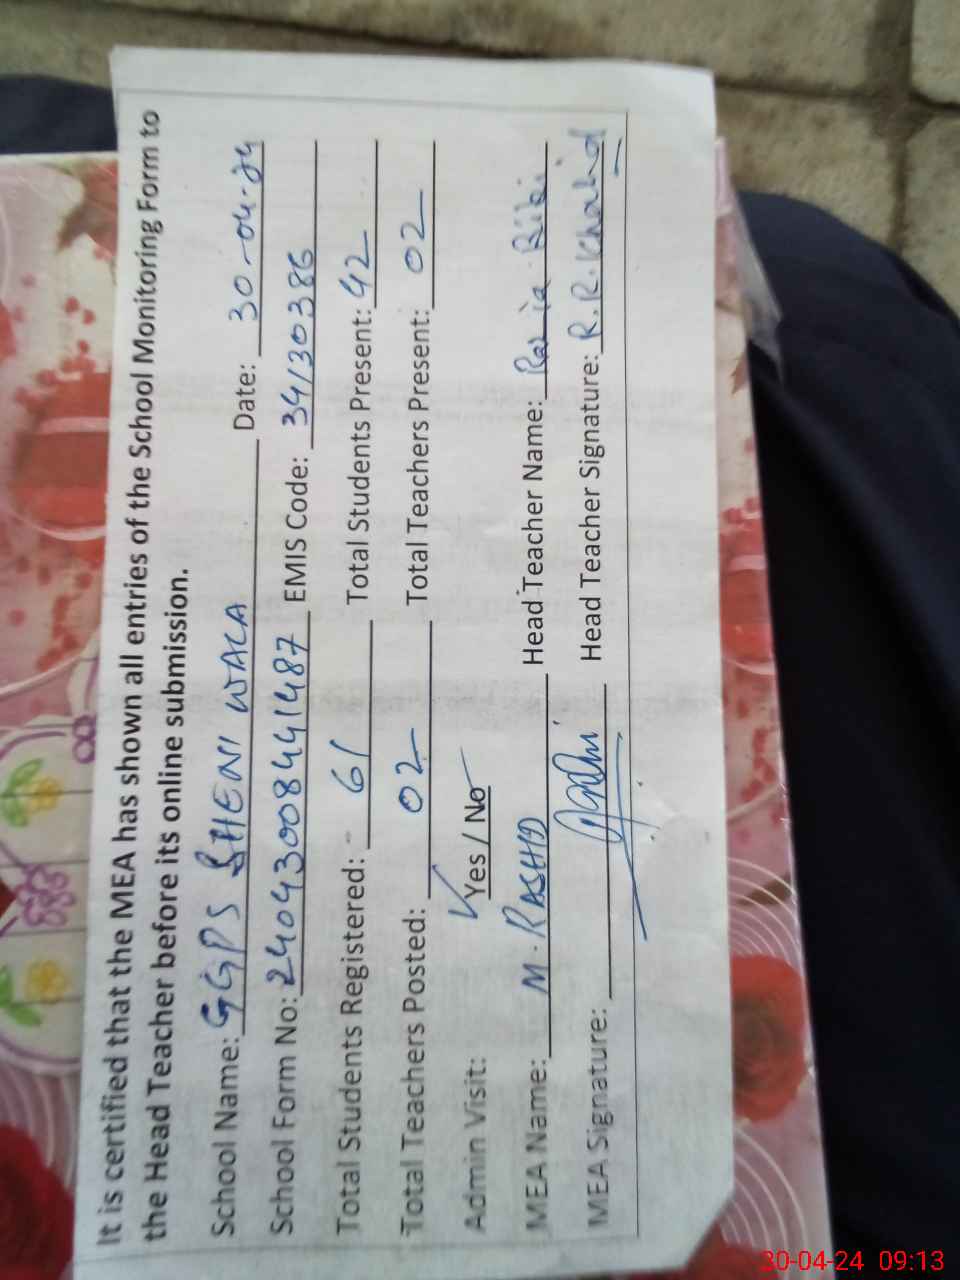 It is certified that the MEA has shown all entries of the School Monitoring Form to
the Head Teacher before its online submission.
School Name: GGPS SHENI WALA Date: 30-04-24
School Form No: 24043008441487 EMIS Code: 34130386
Total Students Registered: 61 Total Students Present: 42
Total Teachers Posted: 02 Total Teachers Present: 02
Admin Visit: Yes / No
MEA Name: M. RASHID Head Teacher Name: Razia Bibi
MEA Signature: Head Teacher Signature: R.R.Khalid
30-04-24 09:13